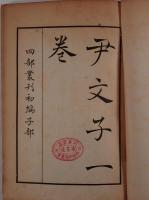 尹文子一
卷
四部叢刊初編子部